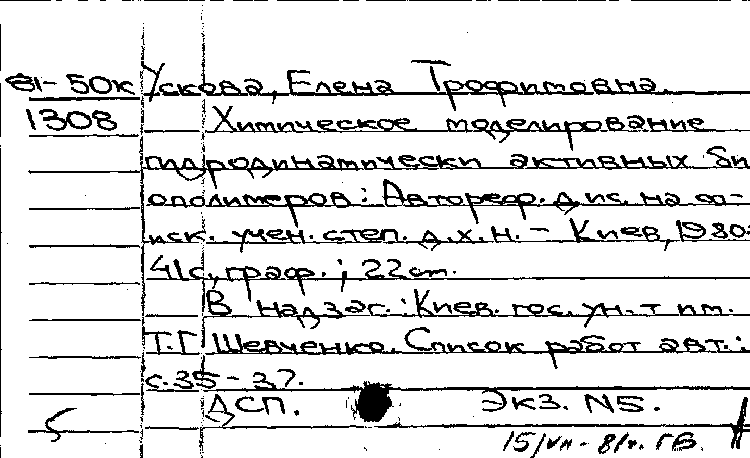 81-50к Ускова, Елена Трофимовна.
1308 Химическое моделирование
гидродинамически активных би
ополимеров: Автореф. дис. на со-
иск. учен. степ. д.х.н. - Киев, 1980.
41с., граф.; 22см.
В надзаг.: Киев. гос. ун-т им.
Т.Г. Шевченко. Список работ авт.:
с.35-37.
ДСП. Экз. N5.